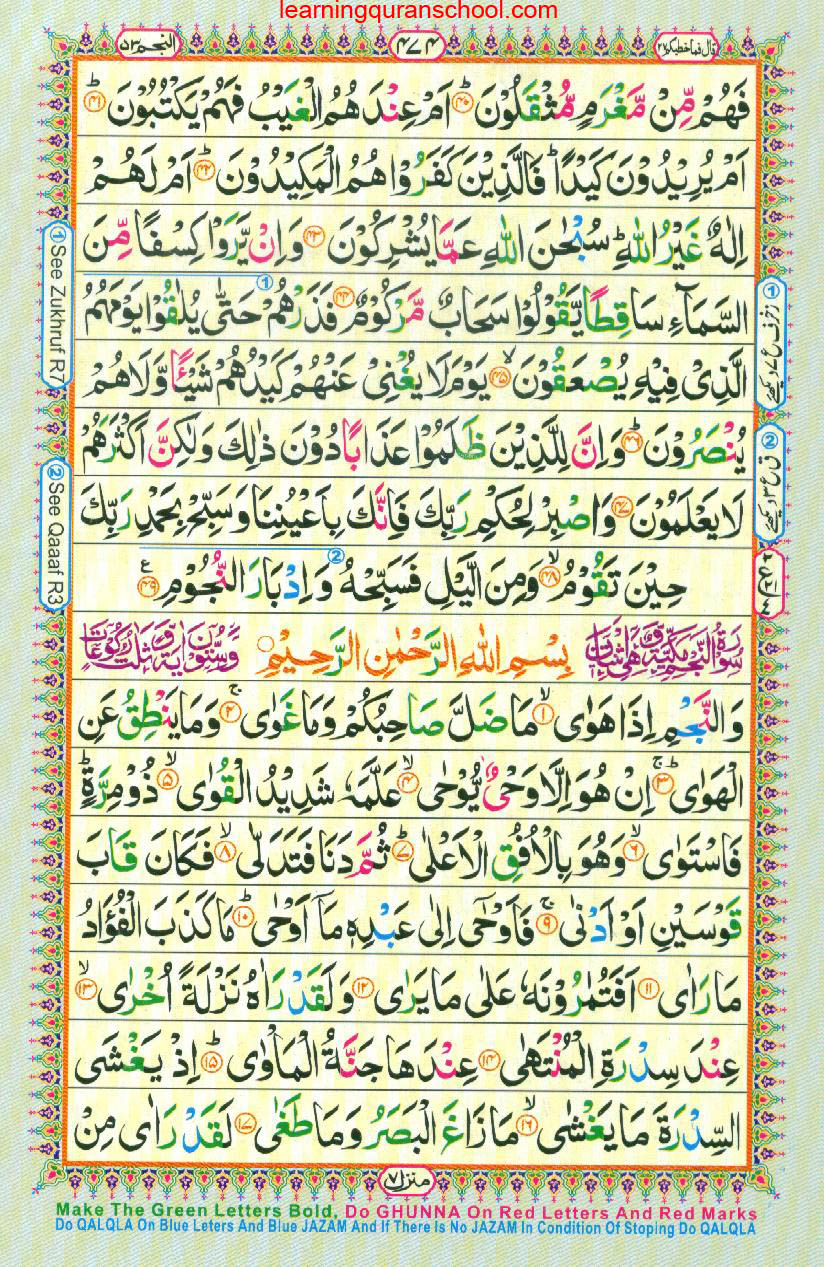 learningquranschool.com
قال فما خطبكم ٢٧
٤٧٤
النجم ٥٣
فَهُمْ مِّنْ مَّغْرَمٍ مُّثْقَلُوْنَ ؕ ﴿۴۰﴾ اَمْ عِنْدَهُمُ الْغَيْبُ فَهُمْ يَكْتُبُوْنَ ؕ ﴿۴۱﴾
اَمْ يُرِيْدُوْنَ كَيْدًا ؕ فَالَّذِيْنَ كَفَرُوْا هُمُ الْمَكِيْدُوْنَ ؕ ﴿۴۲﴾ اَمْ لَهُمْ
اِلٰهٌ غَيْرُ اللّٰهِ ؕ سُبْحٰنَ اللّٰهِ عَمَّا يُشْرِكُوْنَ ﴿۴۳﴾ وَاِنْ يَّرَوْا كِسْفًا مِّنَ
السَّمَآءِ سَاقِطًا يَّقُوْلُوْا سَحَابٌ مَّرْكُوْمٌ ﴿۴۴﴾ فَذَرْهُمْ ① حَتّٰى يُلٰقُوْا يَوْمَهُمُ
الَّذِىْ فِيْهِ يُصْعَقُوْنَ ۙ ﴿۴۵﴾ يَوْمَ لَا يُغْنِىْ عَنْهُمْ كَيْدُهُمْ شَيْـًٔا وَّلَا هُمْ
يُنْصَرُوْنَ ؕ ﴿۴۶﴾ وَاِنَّ لِلَّذِيْنَ ظَلَمُوْا عَذَابًا دُوْنَ ذٰلِكَ وَلٰكِنَّ اَكْثَرَهُمْ
لَا يَعْلَمُوْنَ ﴿۴۷﴾ وَاصْبِرْ لِحُكْمِ رَبِّكَ فَاِنَّكَ بِاَعْيُنِنَا وَسَبِّحْ بِحَمْدِ رَبِّكَ
حِيْنَ تَقُوْمُ ۙ ﴿۴۸﴾ وَمِنَ الَّيْلِ فَسَبِّحْهُ ② وَاِدْبَارَ النُّجُوْمِ ﴿۴۹﴾ ع
سُوْرَةُ النَّجْمِ مَكِّيَّةٌ وَّهِىَ اثْنَتَانِ
بِسْمِ اللّٰهِ الرَّحْمٰنِ الرَّحِيْمِ
وَّسِتُّوْنَ اٰيَةً وَّثَلٰثُ رُكُوْعَاتٍ
وَالنَّجْمِ اِذَا هَوٰى ۙ ﴿۱﴾ مَا ضَلَّ صَاحِبُكُمْ وَمَا غَوٰى ۚ ﴿۲﴾ وَمَا يَنْطِقُ عَنِ
الْهَوٰى ؕ ﴿۳﴾ اِنْ هُوَ اِلَّا وَحْىٌ يُّوْحٰى ۙ ﴿۴﴾ عَلَّمَهٗ شَدِيْدُ الْقُوٰى ۙ ﴿۵﴾ ذُوْ مِرَّةٍ ؕ
فَاسْتَوٰى ۙ ﴿۶﴾ وَهُوَ بِالْاُفُقِ الْاَعْلٰى ؕ ﴿۷﴾ ثُمَّ دَنَا فَتَدَلّٰى ۙ ﴿۸﴾ فَكَانَ قَابَ
قَوْسَيْنِ اَوْ اَدْنٰى ۚ ﴿۹﴾ فَاَوْحٰۤى اِلٰى عَبْدِهٖ مَاۤ اَوْحٰى ؕ ﴿۱۰﴾ مَا كَذَبَ الْفُؤَادُ
مَا رَاٰى ﴿۱۱﴾ اَفَتُمٰرُوْنَهٗ عَلٰى مَا يَرٰى ﴿۱۲﴾ وَلَقَدْ رَاٰهُ نَزْلَةً اُخْرٰى ۙ ﴿۱۳﴾
عِنْدَ سِدْرَةِ الْمُنْتَهٰى ﴿۱۴﴾ عِنْدَهَا جَنَّةُ الْمَاْوٰى ؕ ﴿۱۵﴾ اِذْ يَغْشَى
السِّدْرَةَ مَا يَغْشٰى ۙ ﴿۱۶﴾ مَا زَاغَ الْبَصَرُ وَمَا طَغٰى ﴿۱۷﴾ لَقَدْ رَاٰى مِنْ
① See Zukhruf R7
② See Qaaaf R3
① زخرف ع ٧ دیکھئے
② ق ع ٣ دیکھئے
منزل ٧
Make The Green Letters Bold, Do GHUNNA On Red Letters And Red Marks
Do QALQLA On Blue Leters And Blue JAZAM And If There Is No JAZAM In Condition Of Stoping Do QALQLA